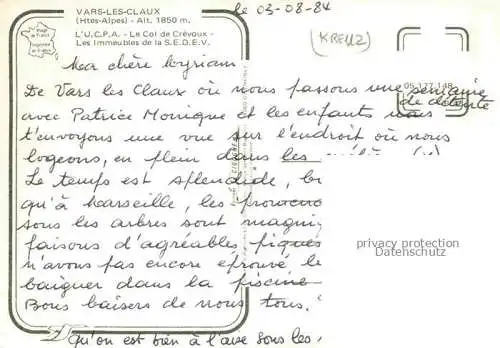 VARS-LES-CLAUX
(Htes-Alpes) - Alt. 1850 m.
L'U.C.P.A. - Le Col de Crévoux -
Les Immeubles de la S.E.D.E.V.
le 03-08-84
(KREUZ)
05 177 148
Ma chère Myriam.
De Vars les Claux où nous passons une semaine
de détente
avec Patrice Monique et les enfants nous
t'envoyons une vue sur l'endroit où nous
logeons, en plein dans les
Le temps est splendide,
qu'à Marseille, les
sous les arbres sont
faisons d'agréables
n'avons pas encore éprouvé le
baigner dans la piscine
Bons baisers de nous tous.
Qu'on est bien à l'aise sous les
privacy protection
Datenschutz